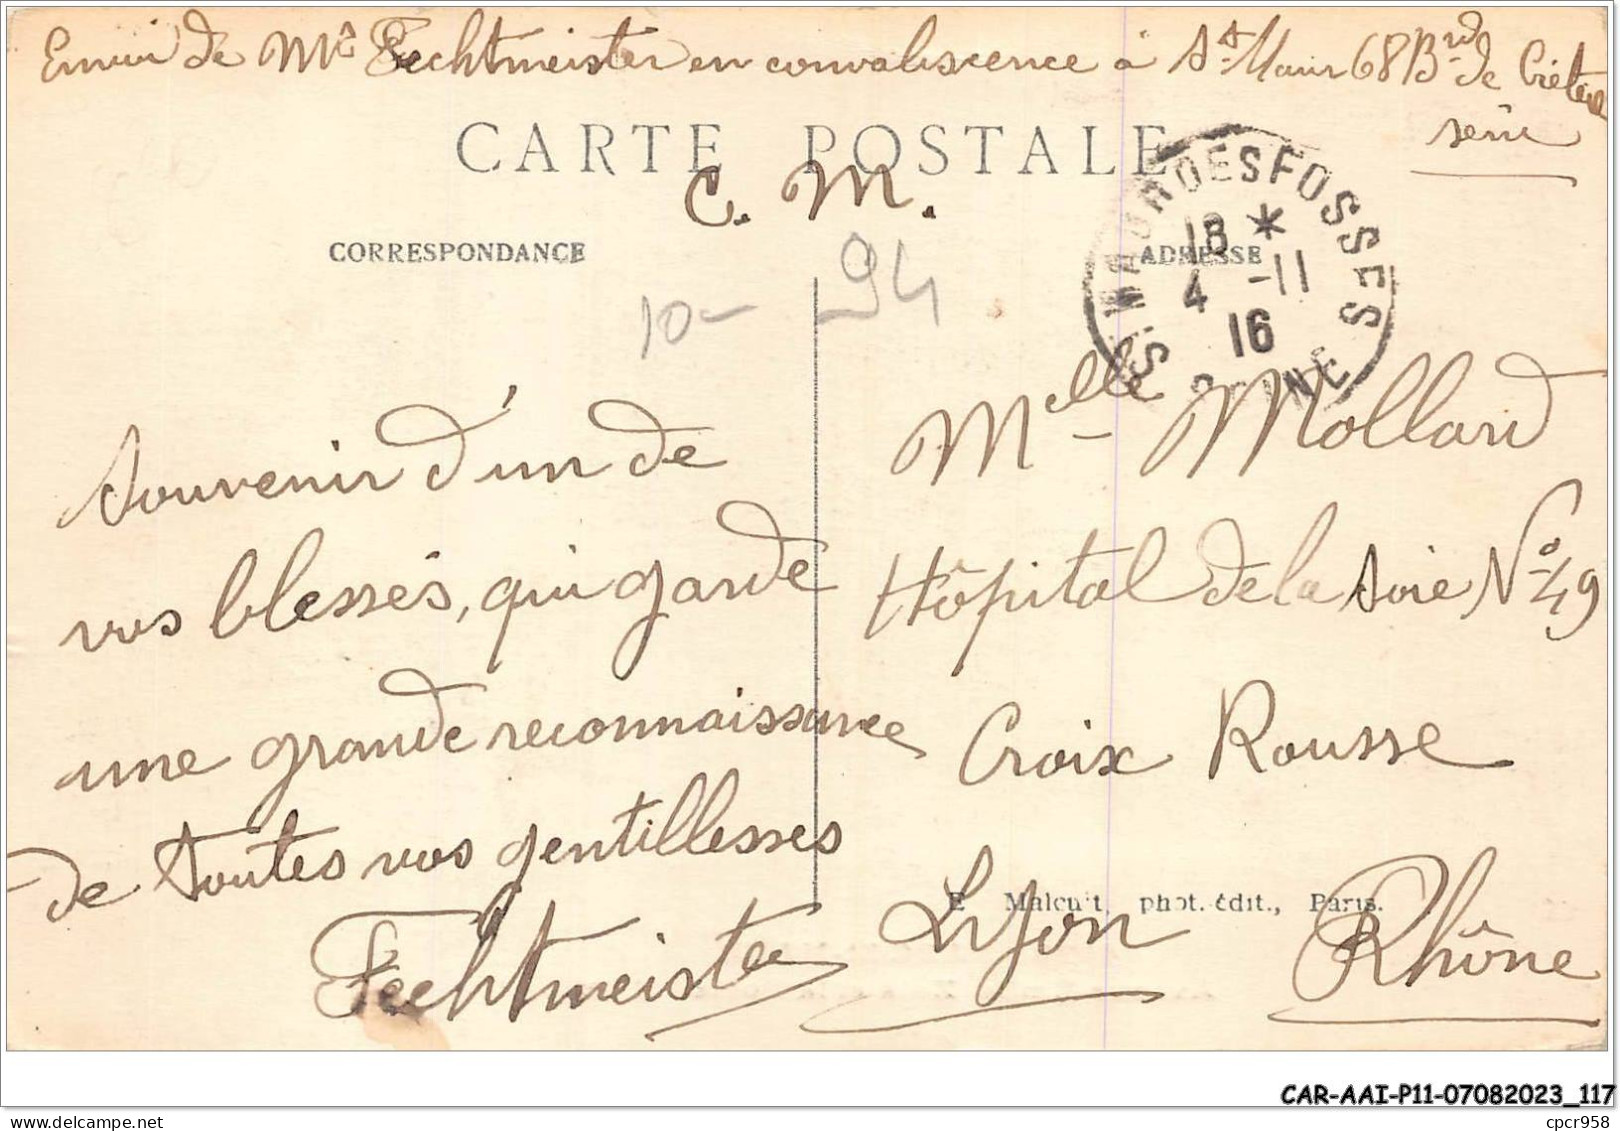 Envoi de Mr Fechtmeister en convalescence à St Maur 68 Brd de Créteil
Seine
CARTE POSTALE
C. M.
CORRESPONDANCE
ADRESSE
10-
94
ST MAUR DES FOSSES
18 *
4 -11
16
SEINE
Souvenir d'un de
vos blessés, qui garde
une grande reconnaissance
de toutes vos gentillesses
Fechtmeister
Melle Mollard
Hôpital de la Soie No 49
Croix Rousse
Lyon Rhône
E Malcuit phot.-édit., Paris.
CAR-AAI-P11-07082023_117
cpcr958